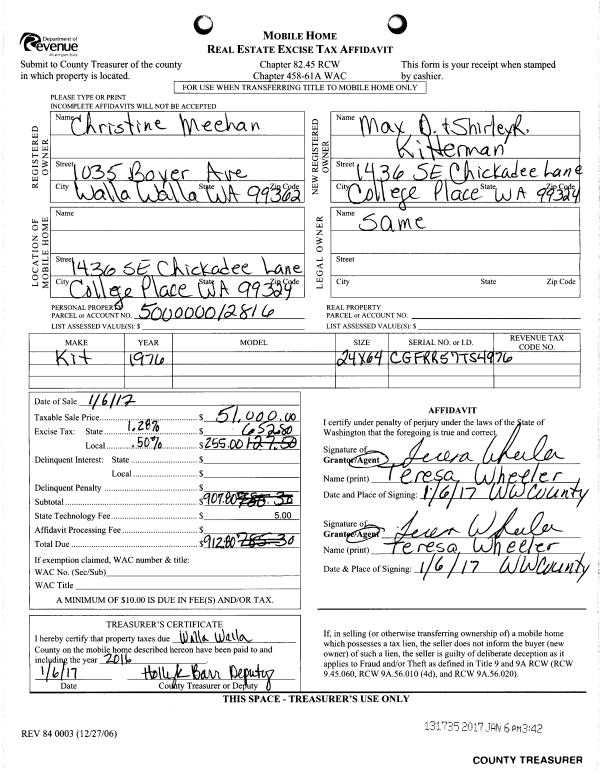 Department of
Revenue
Washington State
MOBILE HOME
REAL ESTATE EXCISE TAX AFFIDAVIT
Submit to County Treasurer of the county
in which property is located.
Chapter 82.45 RCW
Chapter 458-61A WAC
This form is your receipt when stamped
by cashier.
FOR USE WHEN TRANSFERRING TITLE TO MOBILE HOME ONLY
PLEASE TYPE OR PRINT
INCOMPLETE AFFIDAVITS WILL NOT BE ACCEPTED
REGISTERED OWNER
Name Christine Meehan
Street 1035 Boyer Ave
City Walla Walla State WA Zip Code 99362
NEW REGISTERED OWNER
Name Max D. + Shirley R.
Kitterman
Street 1436 SE Chickadee Lane
City College Place State WA Zip Code 99324
LOCATION OF MOBILE HOME
Name
Street 1436 SE Chickadee Lane
City College Place State WA Zip Code 99324
LEGAL OWNER
Name Same
Street
City State Zip Code
PERSONAL PROPERTY
PARCEL or ACCOUNT NO. 500000012816
LIST ASSESSED VALUE(S): $
REAL PROPERTY
PARCEL or ACCOUNT NO.
LIST ASSESSED VALUE(S): $
MAKE YEAR MODEL SIZE SERIAL NO. or I.D. REVENUE TAX CODE NO.
Kit 1976 24X64 CGFRR57TS4976
Date of Sale 1/6/17
Taxable Sale Price $ 51,000.00
Excise Tax: State 1.28% $ 652.80
Local .50% $ 255.00 127.50
Delinquent Interest: State $
Local $
Delinquent Penalty $
Subtotal $ 907.80 780.30
State Technology Fee $ 5.00
Affidavit Processing Fee $
Total Due $ 912.80 785.30
If exemption claimed, WAC number & title:
WAC No. (Sec/Sub)
WAC Title
A MINIMUM OF $10.00 IS DUE IN FEE(S) AND/OR TAX.
AFFIDAVIT
I certify under penalty of perjury under the laws of the State of
Washington that the foregoing is true and correct.
Signature of
Grantor/Agent Teresa Wheeler
Name (print) Teresa Wheeler
Date and Place of Signing: 1/6/17 WW County
Signature of
Grantee/Agent Teresa Wheeler
Name (print) Teresa Wheeler
Date & Place of Signing: 1/6/17 WW County
TREASURER'S CERTIFICATE
I hereby certify that property taxes due Walla Walla
County on the mobile home described hereon have been paid to and
including the year 2016
1/6/17 Holly K Barr Deputy
Date County Treasurer or Deputy
If, in selling (or otherwise transferring ownership of) a mobile home
which possesses a tax lien, the seller does not inform the buyer (new
owner) of such a lien, the seller is guilty of deliberate deception as it
applies to Fraud and/or Theft as defined in Title 9 and 9A RCW (RCW
9.45.060, RCW 9A.56.010 (4d), and RCW 9A.56.020).
THIS SPACE - TREASURER'S USE ONLY
REV 84 0003 (12/27/06)
131735 2017 JAN 6 PM 3:42
COUNTY TREASURER